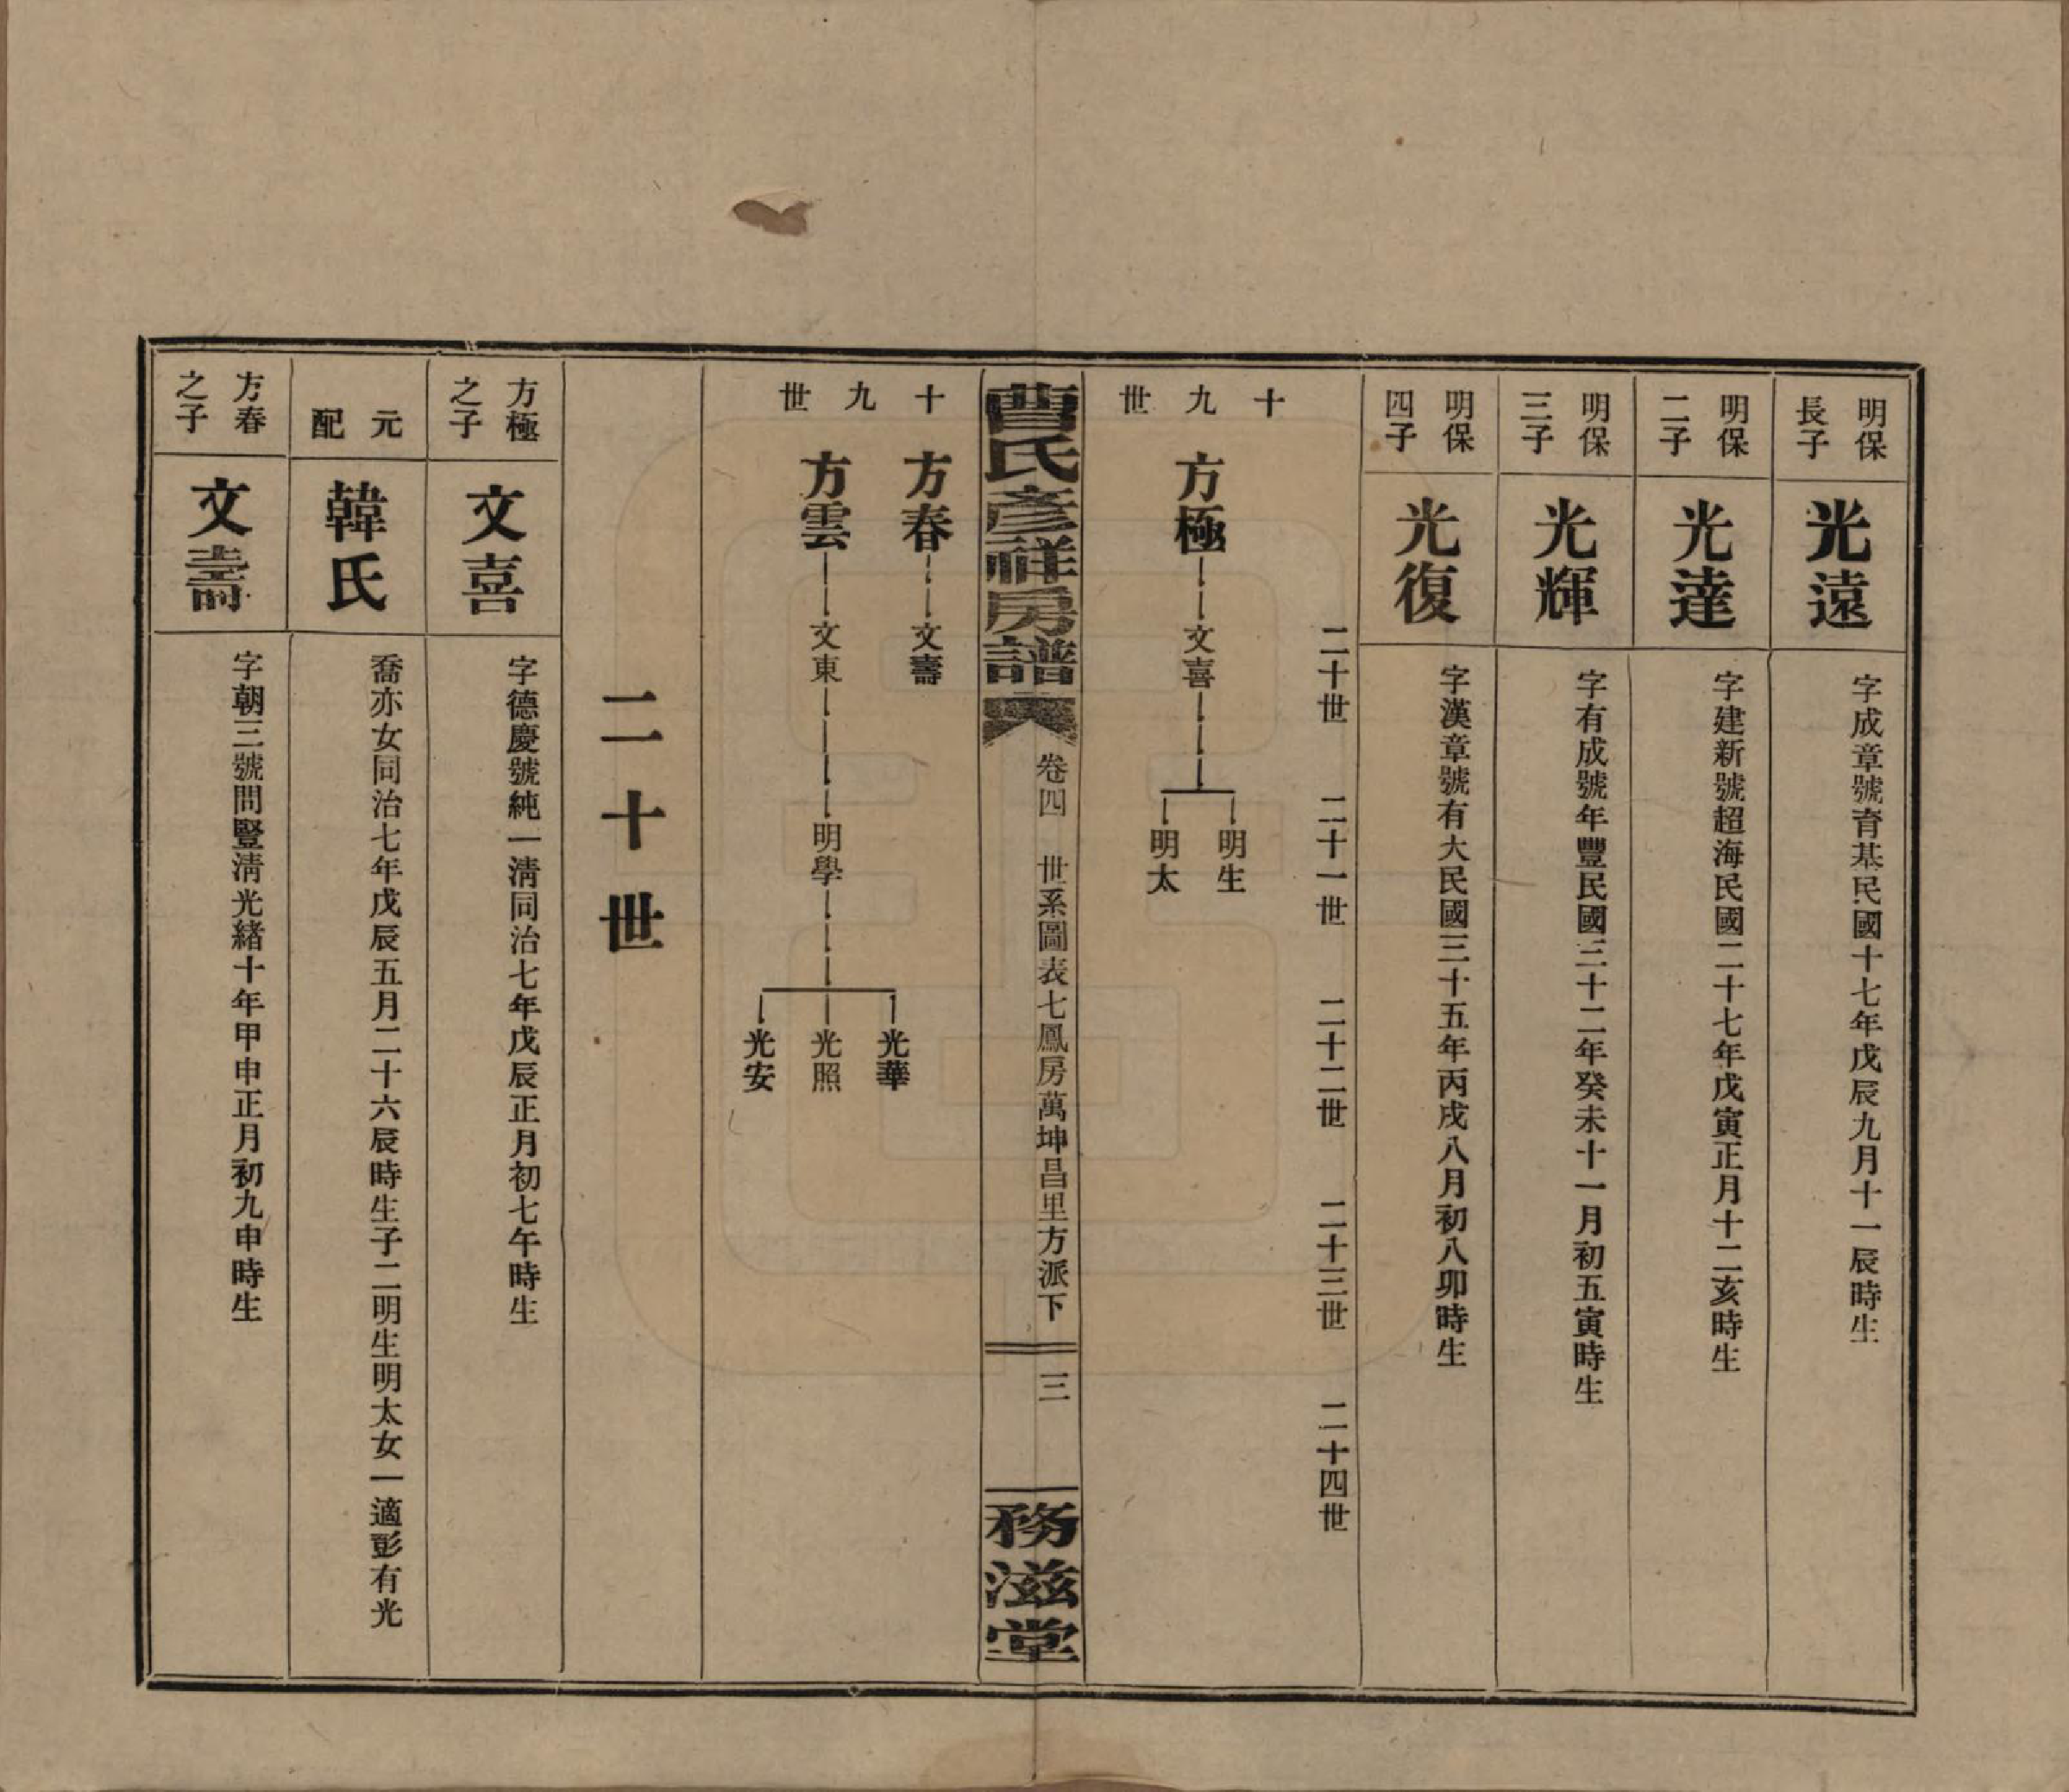 明保
長子
光遠
字成章號育基民國十七年戊辰九月十一辰時生
明保
二子
光達
字建新號超海民國二十七年戊寅正月十二亥時生
明保
三子
光輝
字有成號年豐民國三十二年癸未十一月初五寅時生
明保
四子
光復
字漢章號有大民國三十五年丙戌八月初八卯時生
二十世
二十一世
二十二世
二十三世
二十四世
十九世
方極
文喜
明生
明太
曹氏彥祥房譜
卷四
世系圖表七鳳房萬坤昌里方派下
三
務滋堂
十九世
方春
文壽
方雲
文東
明學
光華
光照
光安
二十世
方極
之子
文喜
字德慶號純一清同治七年戊辰正月初七午時生
元配
韓氏
喬亦女同治七年戊辰五月二十六辰時生子二明生明太女一適彭有光
方春
之子
文壽
字朝三號問豎清光緒十年甲申正月初九申時生